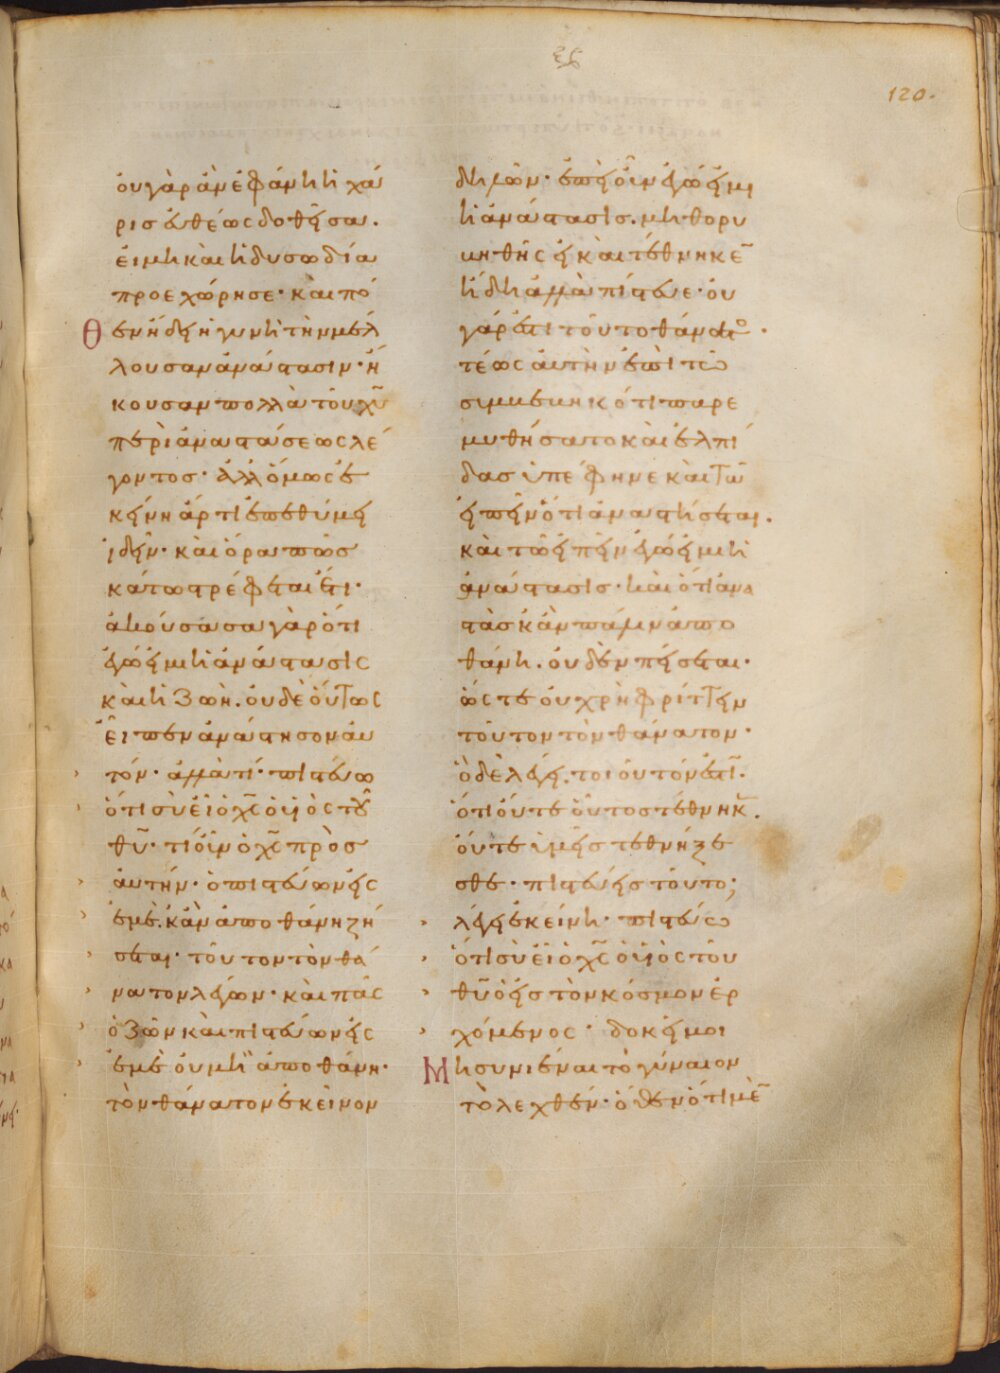 120.
οὐ γὰρ ἂν ἐφάνη ἡ χά
ρις εὐθέως δοθεῖσα.
εἰ μὴ καὶ ἡ δυσωδία
προεχώρησε· καὶ πό
θεν ἤδει ἡ γυνὴ τὴν μέλ
λουσαν ἀνάστασιν· ἤ
κουσαν πολλὰ τοῦ χῦ
περὶ ἀναστάσεως λέ
γοντος· ἀλλ ὅμως ἐ
κείνη ἄρτι ἐπεθύμει
ἰδεῖν· καὶ ὅρα πῶς
κάτω στρέφεται ἔτι·
ἀκούσασα γὰρ ὅτι
ἐγώ εἰμι ἡ ἀνάστασις
καὶ ἡ ζωὴ. οὐδὲ οὕτως
εἶπεν ἀνάστησον αὐ
τόν· ἀλλὰ τί· πιστεύω
ὅτι σὺ εἶ ὁ χς ὁ υἱὸς τοῦ
θῦ· τί οὖν ὁ χς πρὸς
αὐτήν· ὁ πιστεύων εἰς
ἐμὲ. κἂν ἀποθάνη ζή
σεται· τοῦτον τὸν θά
νατον λέγων· καὶ πᾶς
ὁ ζῶν καὶ πιστεύων εἰς
ἐμὲ οὐ μὴ ἀποθάνη·
τὸν θάνατον ἐκεῖνον
δηλῶν· ἐπεὶ οὖν ἐγώ εἰμι
ἡ ἀνάστασις. μὴ θορυ
βηθῆς εἰ καὶ τέθνηκε
ἤδη ἀλλὰ πίστευε· οὐ
γάρ ἐστι τοῦτο θάνατος.
τέως αὐτὴν ἐπὶ τῶ
συμβεβηκότι παρε
μυθήσατο καὶ ἐλπί
δας ὑπέφηνε καὶ τῶ
εἰπεῖν ὅτι ἀναστήσεται.
καὶ τῶ εἰπεῖν ἐγώ εἰμι ἡ
ἀνάστασις· καὶ ὅτι ἀνα
στὰς κἂν πάλιν ἀπο
θάνη. οὐδὲν πείσεται·
ὥστε οὐ χρὴ φρίττειν
τοῦτον τὸν θάνατον·
ὃ δὲ λέγει. τοιοῦτόν ἐστι.
ὅτι οὔτε οὗτος τέθνηκεν.
οὔτε ὑμεῖς τεθνήξε
σθε· πιστεύεις τοῦτο;
λέγει ἐκείνη· πιστεύω
ὅτι σὺ εἶ ὁ χς ὁ υἱὸς τοῦ
θῦ ὁ εἰς τὸν κόσμον ἐρ
χόμενος· δοκεῖ μοι
Μὴ συνιέναι τὸ γύναιον
τὸ λεχθέν· ἀλλ ὅτι μὲν